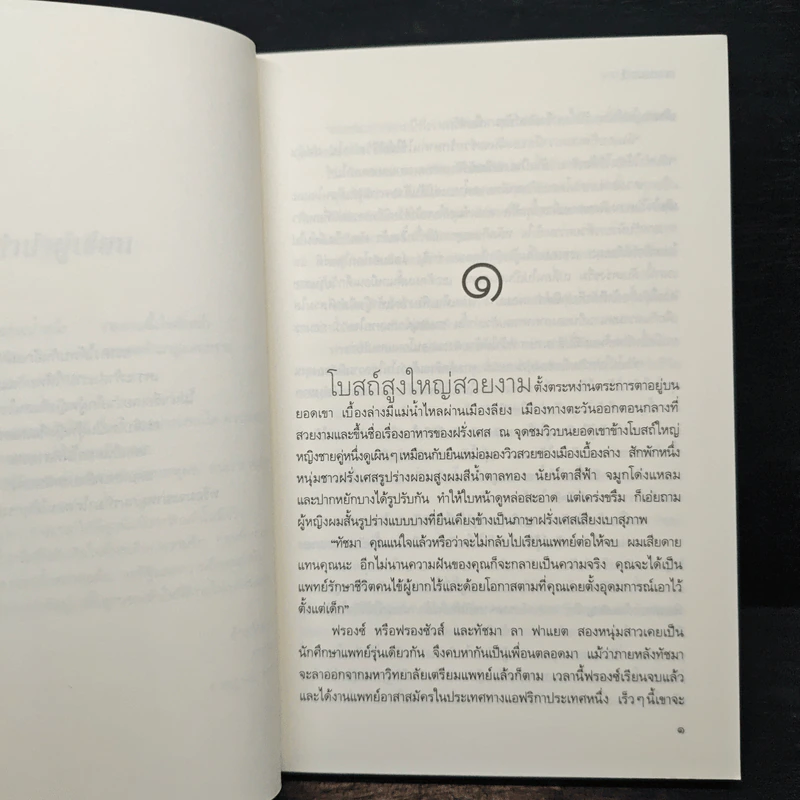 ๑
โบสถ์สูงใหญ่สวยงาม ตั้งตระหง่านตระการตาอยู่บน
ยอดเขา เบื้องล่างมีแม่น้ำไหลผ่านเมืองลียง เมืองทางตะวันออกตอนกลางที่
สวยงามและขึ้นชื่อเรื่องอาหารของฝรั่งเศส ณ จุดชมวิวบนยอดเขาข้างโบสถ์ใหญ่
หญิงชายคู่หนึ่งดูเผินๆ เหมือนกับยืนเหม่อมองวิวสวยของเมืองเบื้องล่าง สักพักหนึ่ง
หนุ่มชาวฝรั่งเศสรูปร่างผอมสูงผมสีน้ำตาลทอง นัยน์ตาสีฟ้า จมูกโด่งแหลม
และปากหยักบางได้รูปรับกัน ทำให้ใบหน้าดูหล่อสะอาด แต่เคร่งขรึม ก็เอ่ยถาม
ผู้หญิงผมสั้นรูปร่างแบบบางที่ยืนเคียงข้างเป็นภาษาฝรั่งเศสเสียงเบาสุภาพ
“ทัชมา คุณแน่ใจแล้วหรือว่าจะไม่กลับไปเรียนแพทย์ต่อให้จบ ผมเสียดาย
แทนคุณนะ อีกไม่นานความฝันของคุณก็จะกลายเป็นความจริง คุณจะได้เป็น
แพทย์รักษาชีวิตคนไข้ผู้ยากไร้และด้อยโอกาสตามที่คุณเคยตั้งอุดมการณ์เอาไว้
ตั้งแต่เด็ก”
ฟรองซ์ หรือฟรองซัวส์ และทัชมา ลา ฟาแยต สองหนุ่มสาวเคยเป็น
นักศึกษาแพทย์รุ่นเดียวกัน จึงคบหากันเป็นเพื่อนตลอดมา แม้ว่าภายหลังทัชมา
จะลาออกจากมหาวิทยาลัยเตรียมแพทย์แล้วก็ตาม เวลานี้ฟรองซ์เรียนจบแล้ว
และได้งานแพทย์อาสาสมัครในประเทศทางแอฟริกาประเทศหนึ่ง เร็วๆ นี้เขาจะ
๑